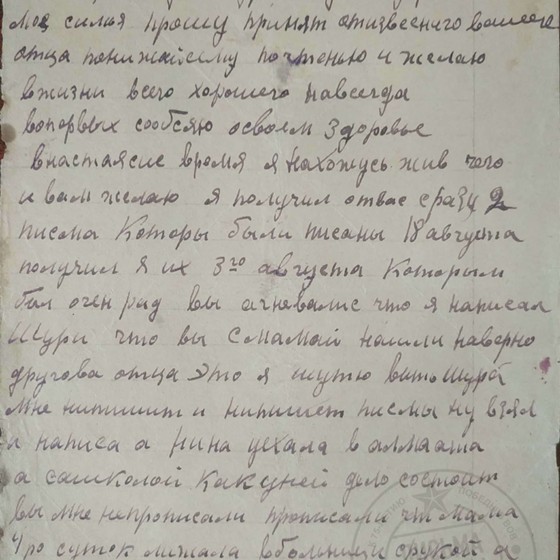 моя силья прошу принят отизвеснего вашего
отца понижайсиму почтенью и желаю
вжизни всего хорошего навсегда
вопервых сообсяю освоем здоровье
внастаясие время я нахожусь жив чего
и вам желаю я получил отвас сразу 2
писма Которы были писаны 18 августа
получил я их 3го августа Которым
был очен рад вы агневалис что я написал
Шури что вы Смамай нашли наверно
другова отца это я шутю Шура
мне нипишит и нипишет писмы ну взял
и написа а Нина уехала в алмаата
а сашколой Какуней дело состоит
вы мне непрописали прописали чт мама
4ро суток лижала вбольницы срукой а